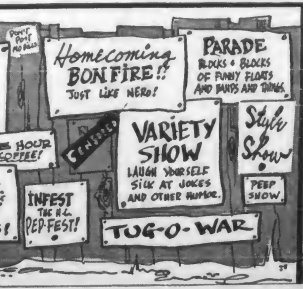 DON'T
POST
NO BILLS.
Homecoming
BONFIRE!!
JUST LIKE NERO!
PARADE
BLOCKS & BLOCKS
OF FUNNY FLOATS
AND BANDS AND THINGS.
CENSORED
VARIETY
SHOW
LAUGH YOURSELF
SICK AT JOKES
AND OTHER HUMOR.
Style
Show
HOUR
COFFEE!
PEEP
SHOW
INFEST
THE H.C.
PEP-FEST!
TUG-O-WAR